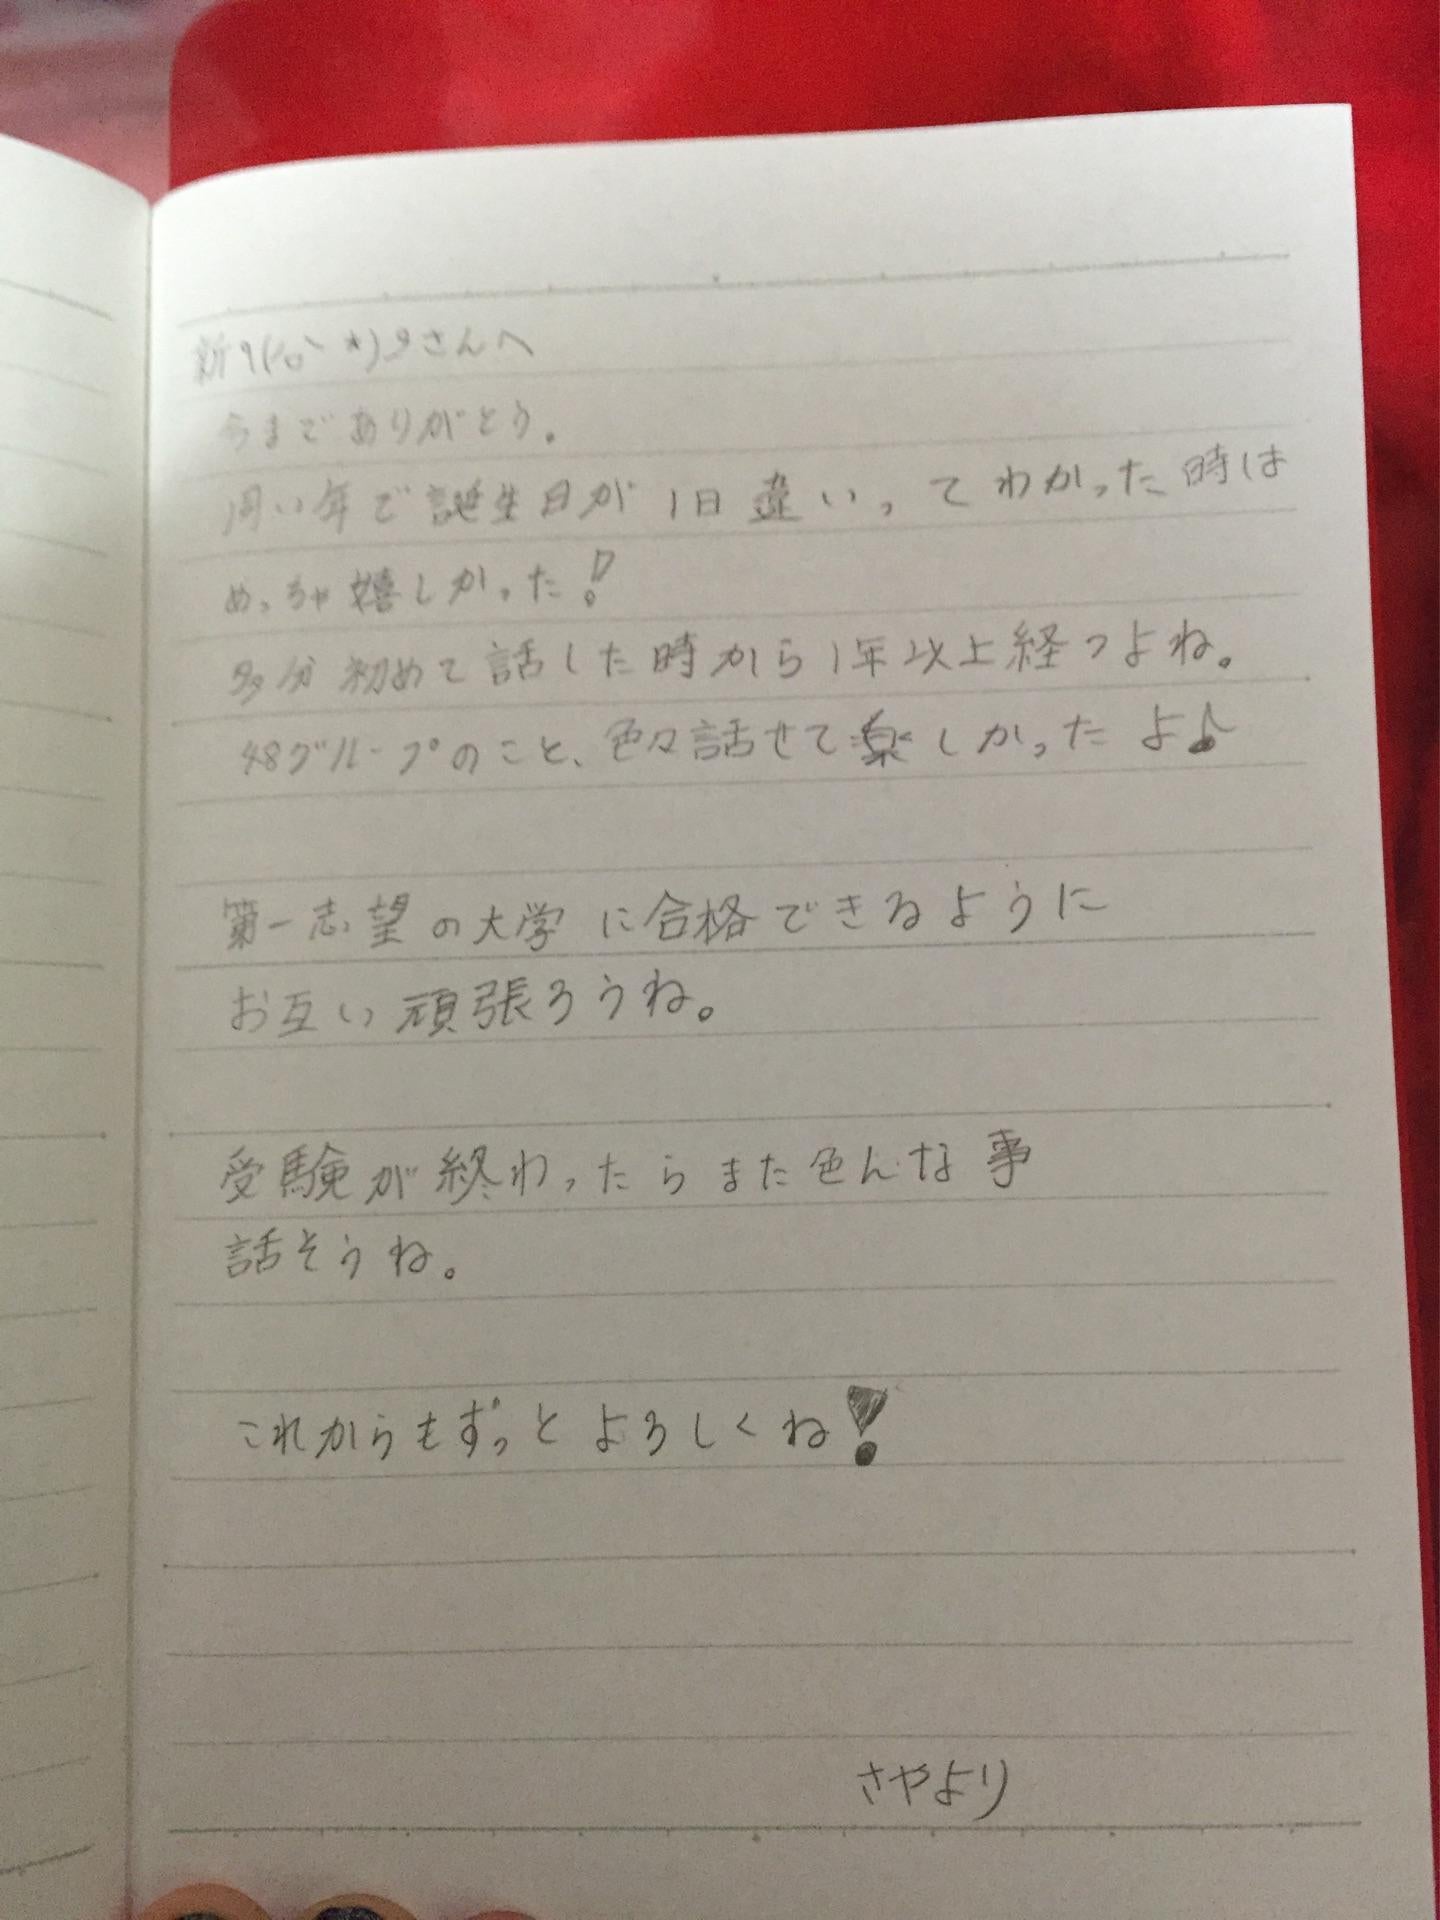 新९(/ロ＼*)وさんへ
今までありがとう。
同い年で誕生日が1日違いってわかった時は
めっちゃ嬉しかった!
多分初めて話した時から1年以上経つよね。
48グループのこと、色々話せて楽しかったよ♪
第一志望の大学に合格できるように
お互い頑張ろうね。
受験が終わったらまた色んな事
話そうね。
これからもずっとよろしくね!
さやより